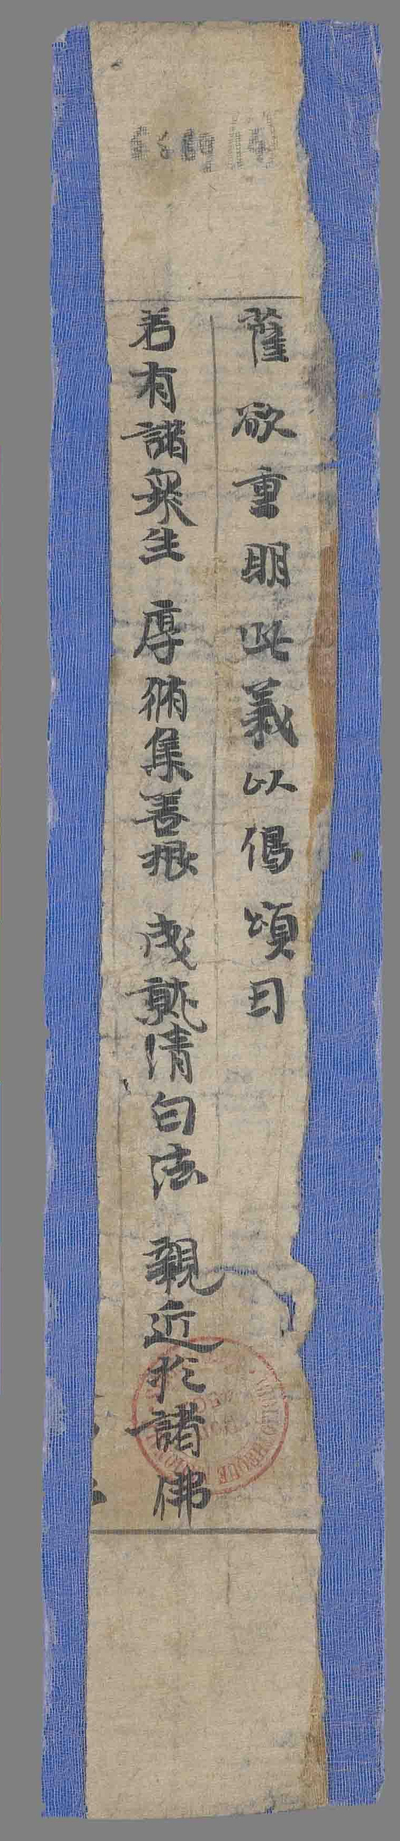 薩欲重明此義以偈頌曰
若有諸衆生 厚脩集善根 成熟清白法 親近於諸佛